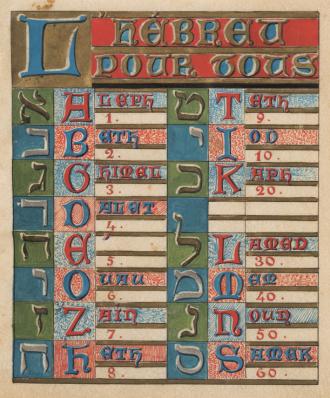 L'HÉBREU
POUR TOUS
א ALEPH
1.
ב BETH
2.
ג GHIMEL
3.
ד DALET
4.
ה E
5.
ו OUAU
6.
ז ZAIN
7.
ח HETH
8.
ט TETH
9.
י IOD
10.
כ KAPH
20.
ך
ל LAMED
30.
מ MEM
40.
נ NOUN
50.
ס SAMEK
60.